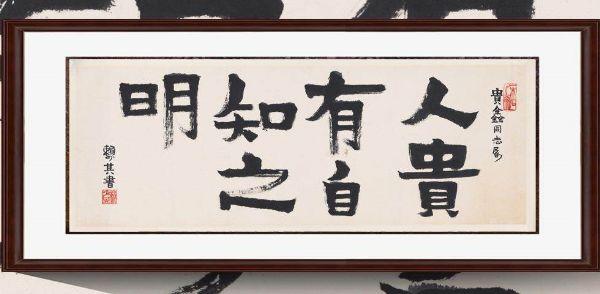 貴鑫同志属
人貴
有自
知之
明
其書